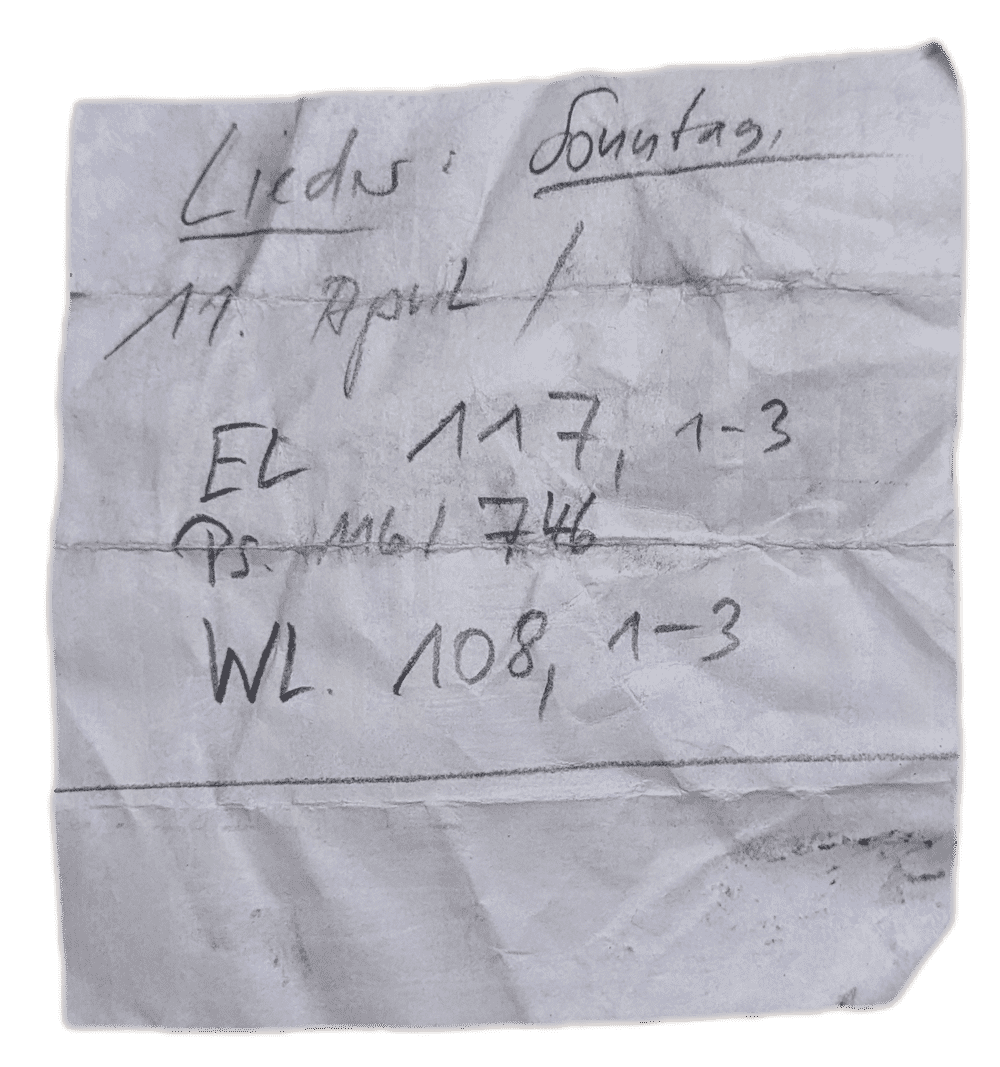 Lieder: Sonntag,
11. April /
EL 117, 1-3
Ps. 116 / 746
WL. 108, 1-3